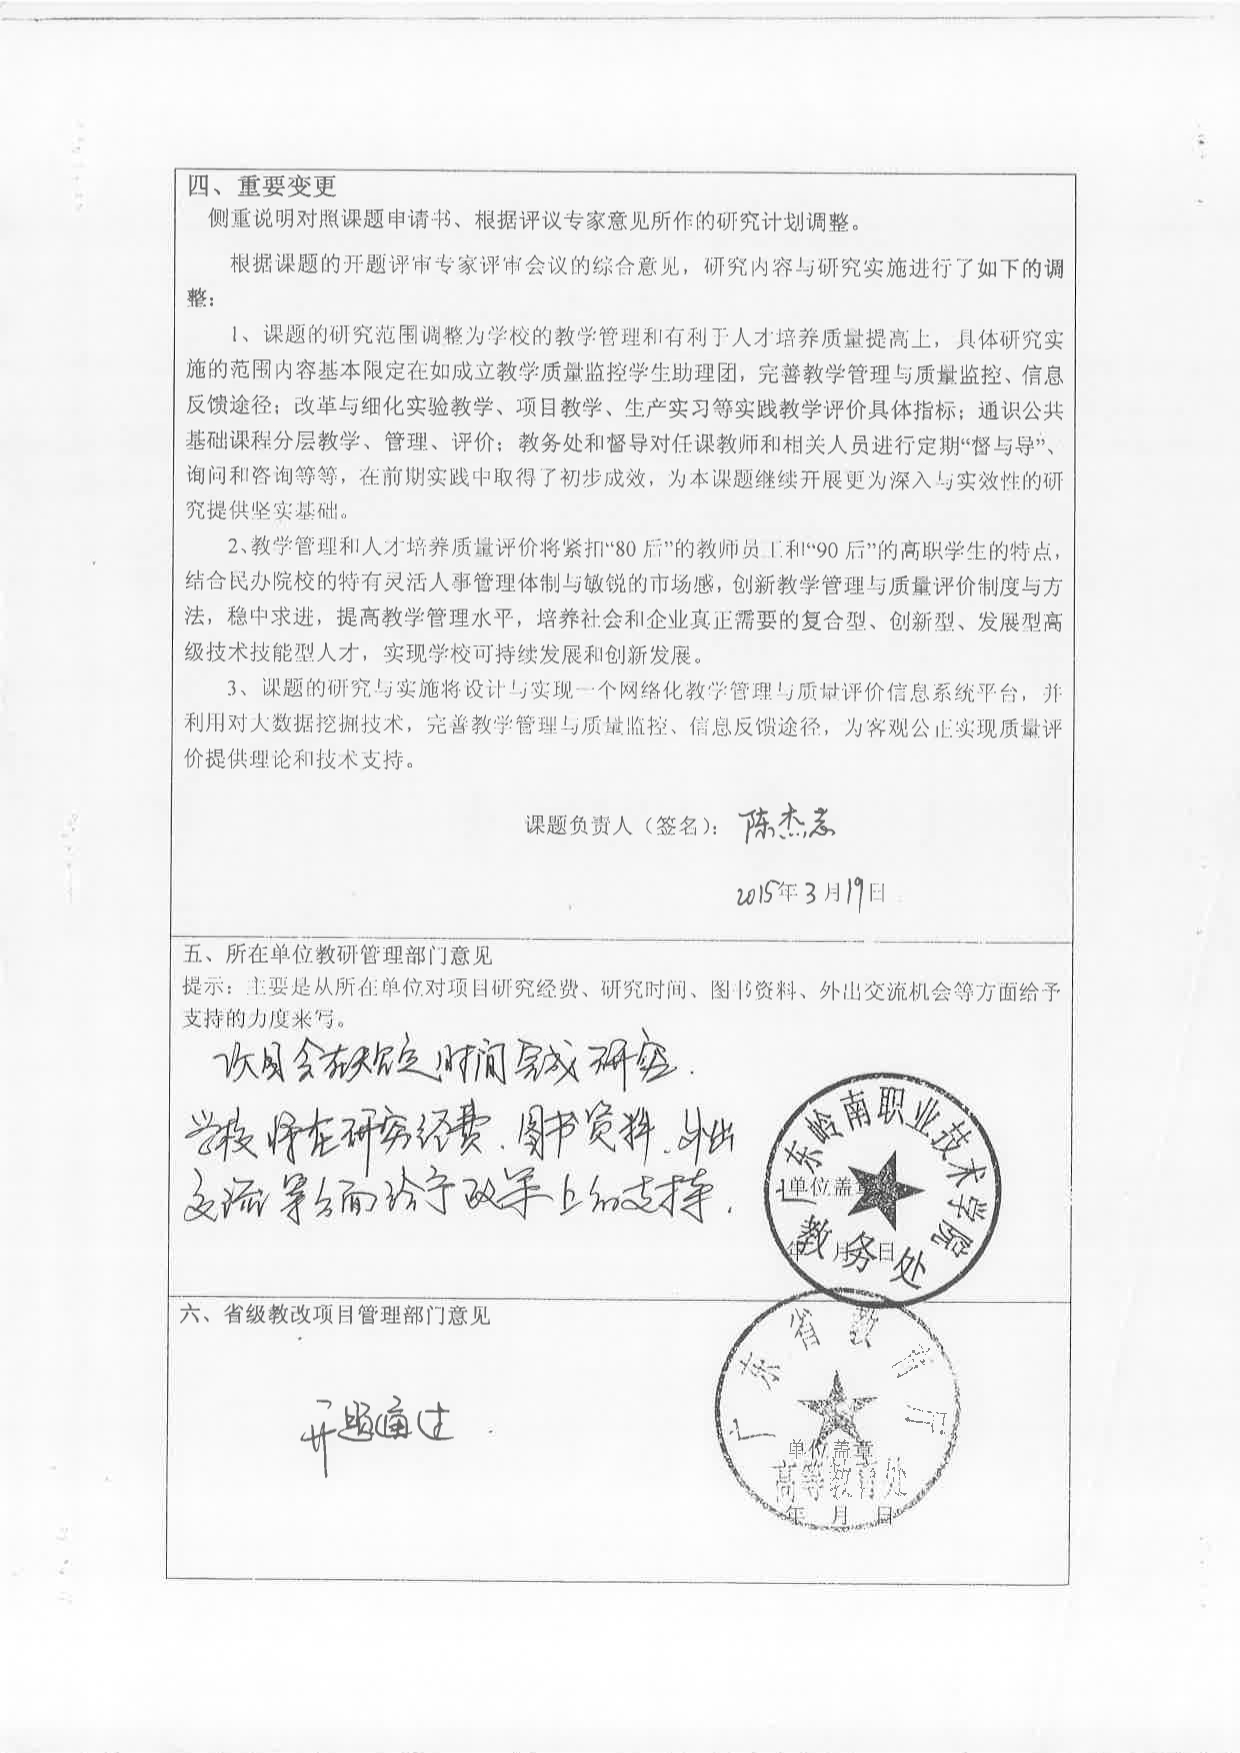 四、重要变更
侧重说明对照课题申请书、根据评议专家意见所作的研究计划调整。
根据课题的开题评审专家评审会议的综合意见，研究内容与研究实施进行了如下的调
整：
1、课题的研究范围调整为学校的教学管理和有利于人才培养质量提高上，具体研究实
施的范围内容基本限定在如成立教学质量监控学生助理团，完善教学管理与质量监控、信息
反馈途径；改革与细化实验教学、项目教学、生产实习等实践教学评价具体指标；通识公共
基础课程分层教学、管理、评价；教务处和督导对任课教师和相关人员进行定期“督与导”、
询问和咨询等等，在前期实践中取得了初步成效，为本课题继续开展更为深入与实效性的研
究提供坚实基础。
2、教学管理和人才培养质量评价将紧扣“80 后”的教师员工和“90 后”的高职学生的特点，
结合民办院校的特有灵活人事管理体制与敏锐的市场感，创新教学管理与质量评价制度与方
法，稳中求进，提高教学管理水平，培养社会和企业真正需要的复合型、创新型、发展型高
级技术技能型人才，实现学校可持续发展和创新发展。
3、课题的研究与实施将设计与实现一个网络化教学管理与质量评价信息系统平台，并
利用对大数据挖掘技术，完善教学管理与质量监控、信息反馈途径，为客观公正实现质量评
价提供理论和技术支持。
课题负责人（签名）： 陈杰志
2015年3月19日
五、所在单位教研管理部门意见
提示：主要是从所在单位对项目研究经费、研究时间、图书资料、外出交流机会等方面给予
支持的力度来写。
项目会在规定时间完成研究.
学校将在研究经费、图书资料、外出
交流等方面给予政策上的支持.
广东岭南职业技术学院
单位盖章
年 月 日
教务处
六、省级教改项目管理部门意见
广东省教育厅
开题通过.
单位盖章
高等教育处
年 月 日